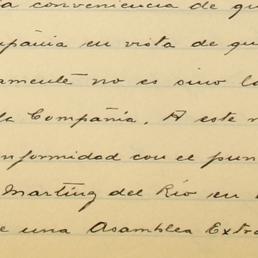 a conveniencia de qu
pañia en vista de qu
amente no es sino la
la Compañia. A este
nformidad con el pun
Martinz del Rio en
e una Asamblea Extra